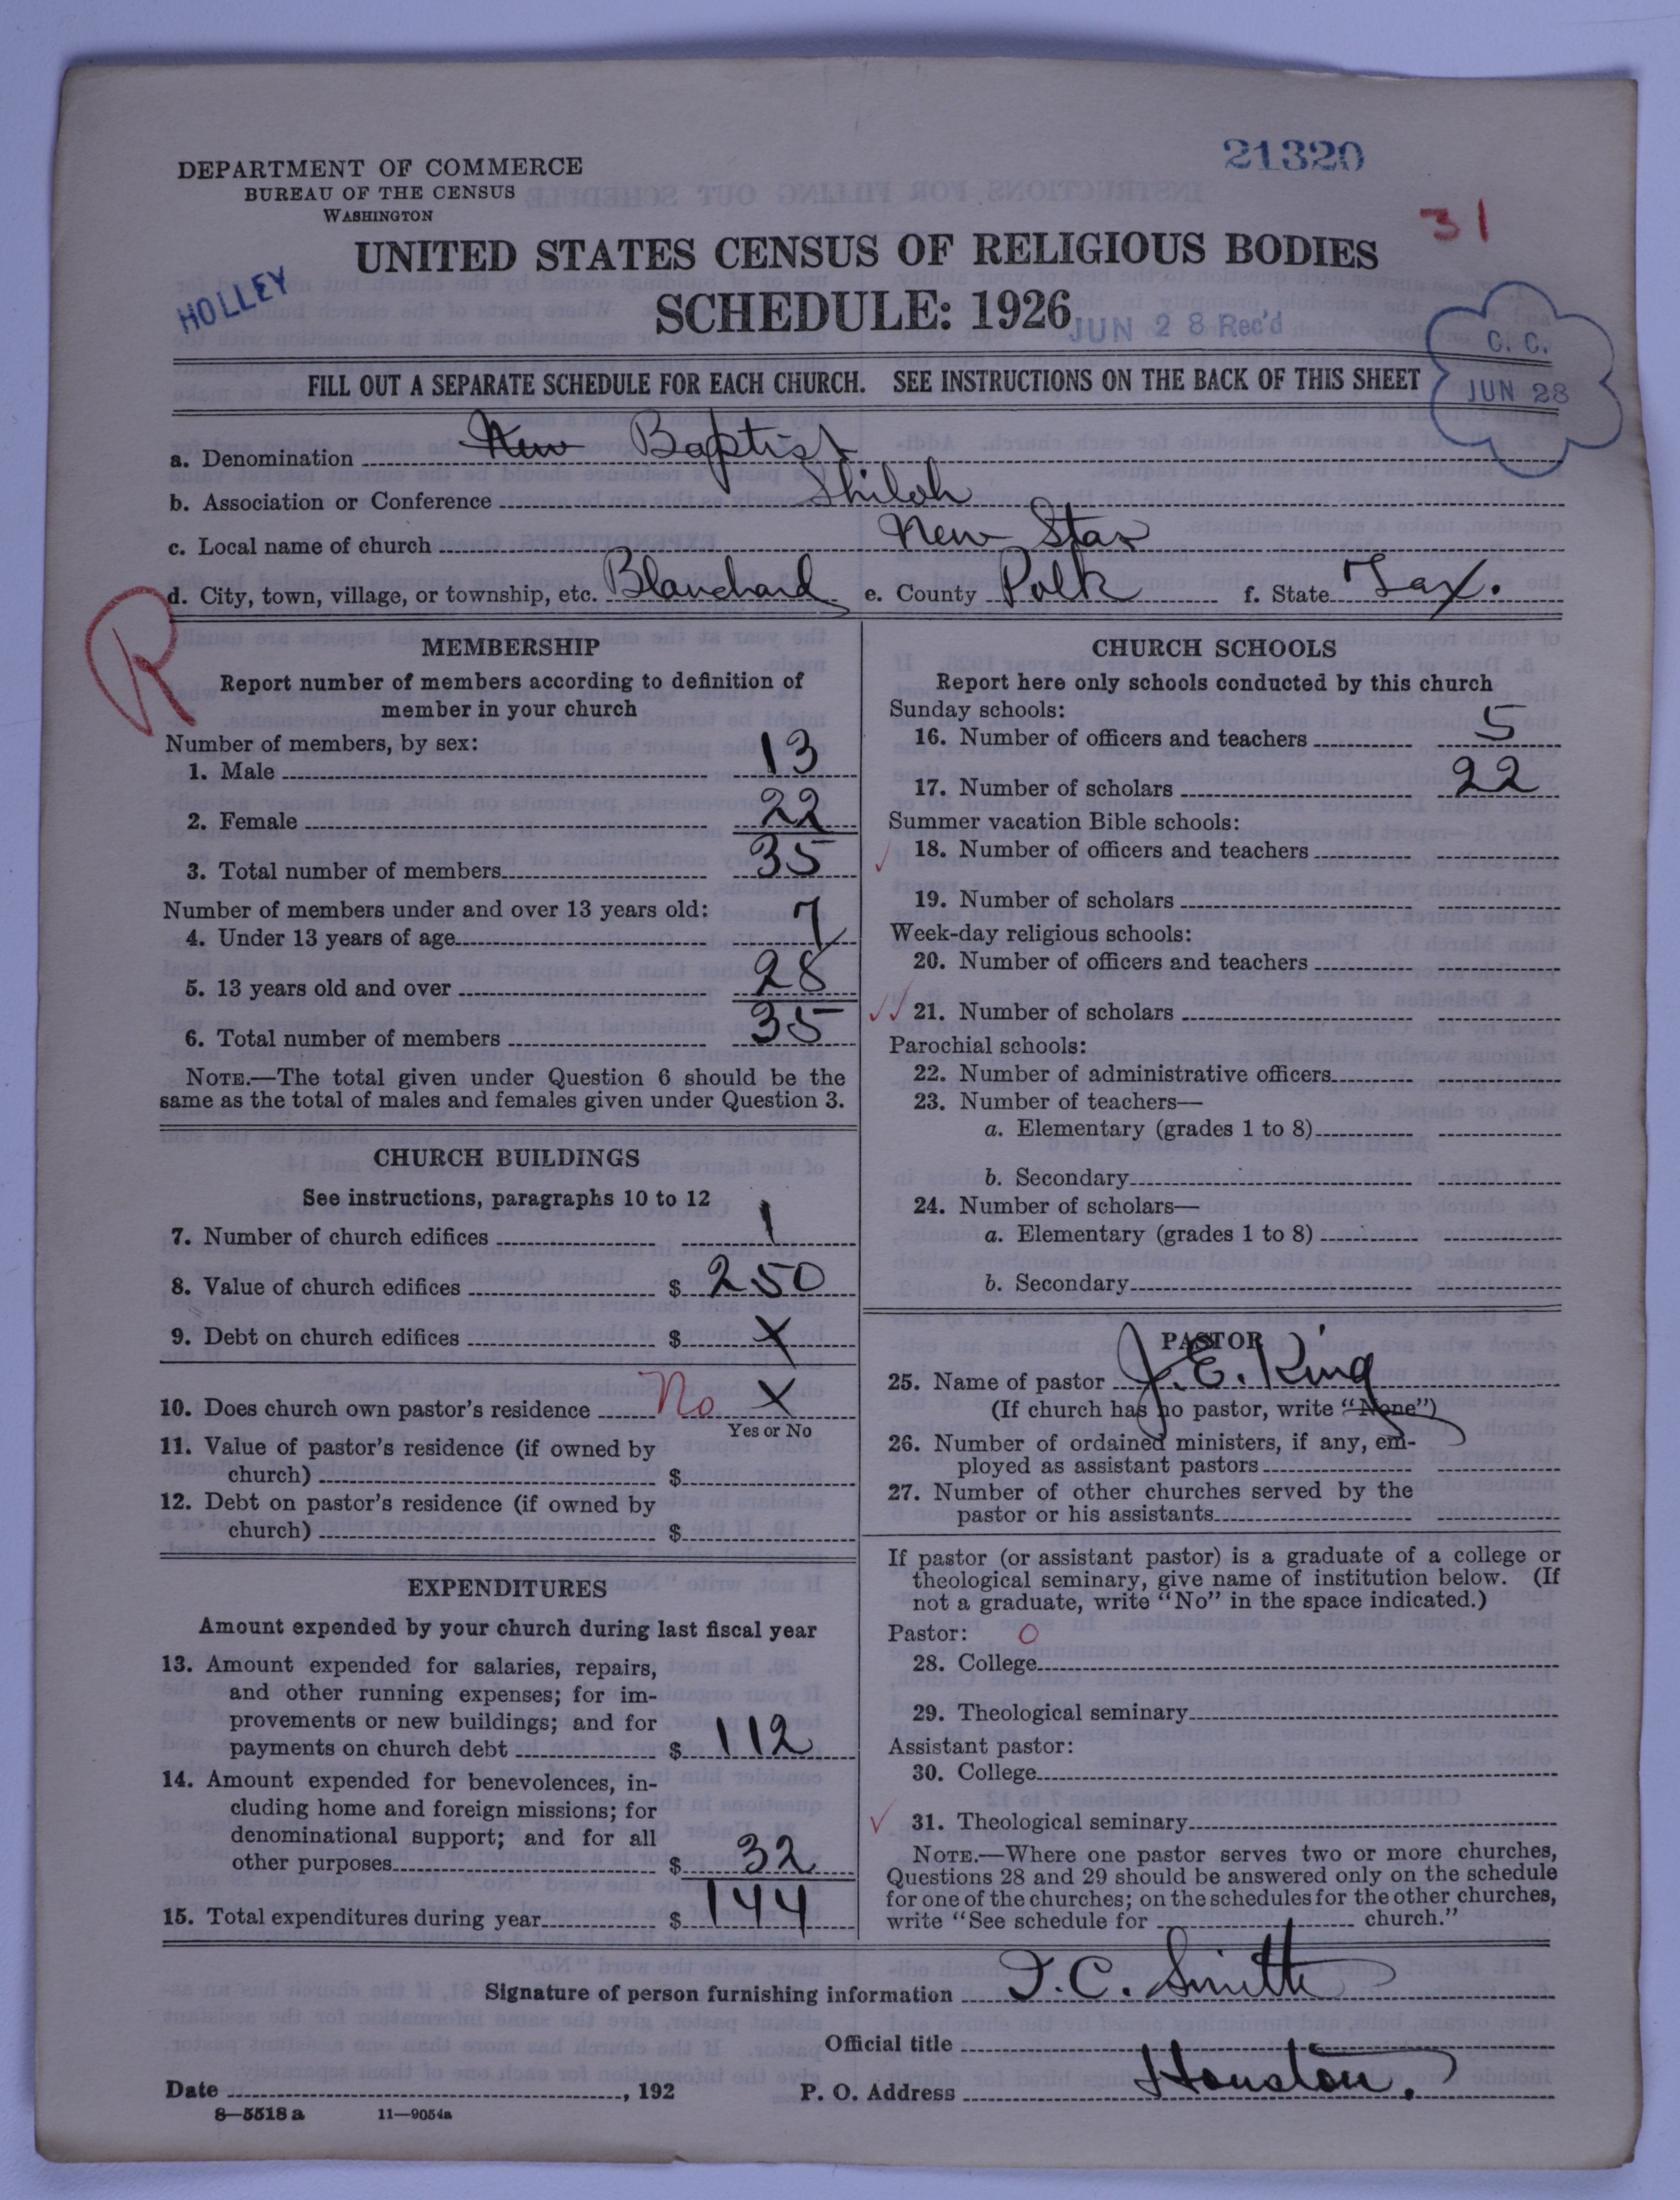 21320
DEPARTMENT OF COMMERCE
BUREAU OF THE CENSUS
WASHINGTON
31
UNITED STATES CENSUS OF RELIGIOUS BODIES
HOLLEY
SCHEDULE: 1926
JUN 28 Rec'd
C. C.
JUN 28
FILL OUT A SEPARATE SCHEDULE FOR EACH CHURCH. SEE INSTRUCTIONS ON THE BACK OF THIS SHEET
a. Denomination New Baptist
b. Association or Conference Shiloh
c. Local name of church New Star
d. City, town, village, or township, etc. Blanchard e. County Polk f. State Tex.
R
MEMBERSHIP
Report number of members according to definition of
member in your church
Number of members, by sex:
1. Male 13
2. Female 22
3. Total number of members 35
Number of members under and over 13 years old:
4. Under 13 years of age 7
5. 13 years old and over 28
6. Total number of members 35
NOTE.—The total given under Question 6 should be the
same as the total of males and females given under Question 3.
CHURCH BUILDINGS
See instructions, paragraphs 10 to 12
7. Number of church edifices 1
8. Value of church edifices $ 250
9. Debt on church edifices $ X
10. Does church own pastor's residence No X
Yes or No
11. Value of pastor's residence (if owned by
church) $
12. Debt on pastor's residence (if owned by
church) $
EXPENDITURES
Amount expended by your church during last fiscal year
13. Amount expended for salaries, repairs,
and other running expenses; for im-
provements or new buildings; and for
payments on church debt $ 112
14. Amount expended for benevolences, in-
cluding home and foreign missions; for
denominational support; and for all
other purposes $ 32
15. Total expenditures during year $ 144
CHURCH SCHOOLS
Report here only schools conducted by this church
Sunday schools:
16. Number of officers and teachers 5
17. Number of scholars 22
Summer vacation Bible schools:
18. Number of officers and teachers
19. Number of scholars
Week-day religious schools:
20. Number of officers and teachers
21. Number of scholars
Parochial schools:
22. Number of administrative officers
23. Number of teachers—
a. Elementary (grades 1 to 8)
b. Secondary
24. Number of scholars—
a. Elementary (grades 1 to 8)
b. Secondary
PASTOR
25. Name of pastor J. E. King
(If church has no pastor, write "None")
26. Number of ordained ministers, if any, em-
ployed as assistant pastors
27. Number of other churches served by the
pastor or his assistants
If pastor (or assistant pastor) is a graduate of a college or
theological seminary, give name of institution below. (If
not a graduate, write "No" in the space indicated.)
Pastor: O
28. College
29. Theological seminary
Assistant pastor:
30. College
31. Theological seminary
NOTE.—Where one pastor serves two or more churches,
Questions 28 and 29 should be answered only on the schedule
for one of the churches; on the schedules for the other churches,
write "See schedule for church."
Signature of person furnishing information J. C. Smith
Official title
Date , 192 P. O. Address Houston.
8—5518 a 11—9054a